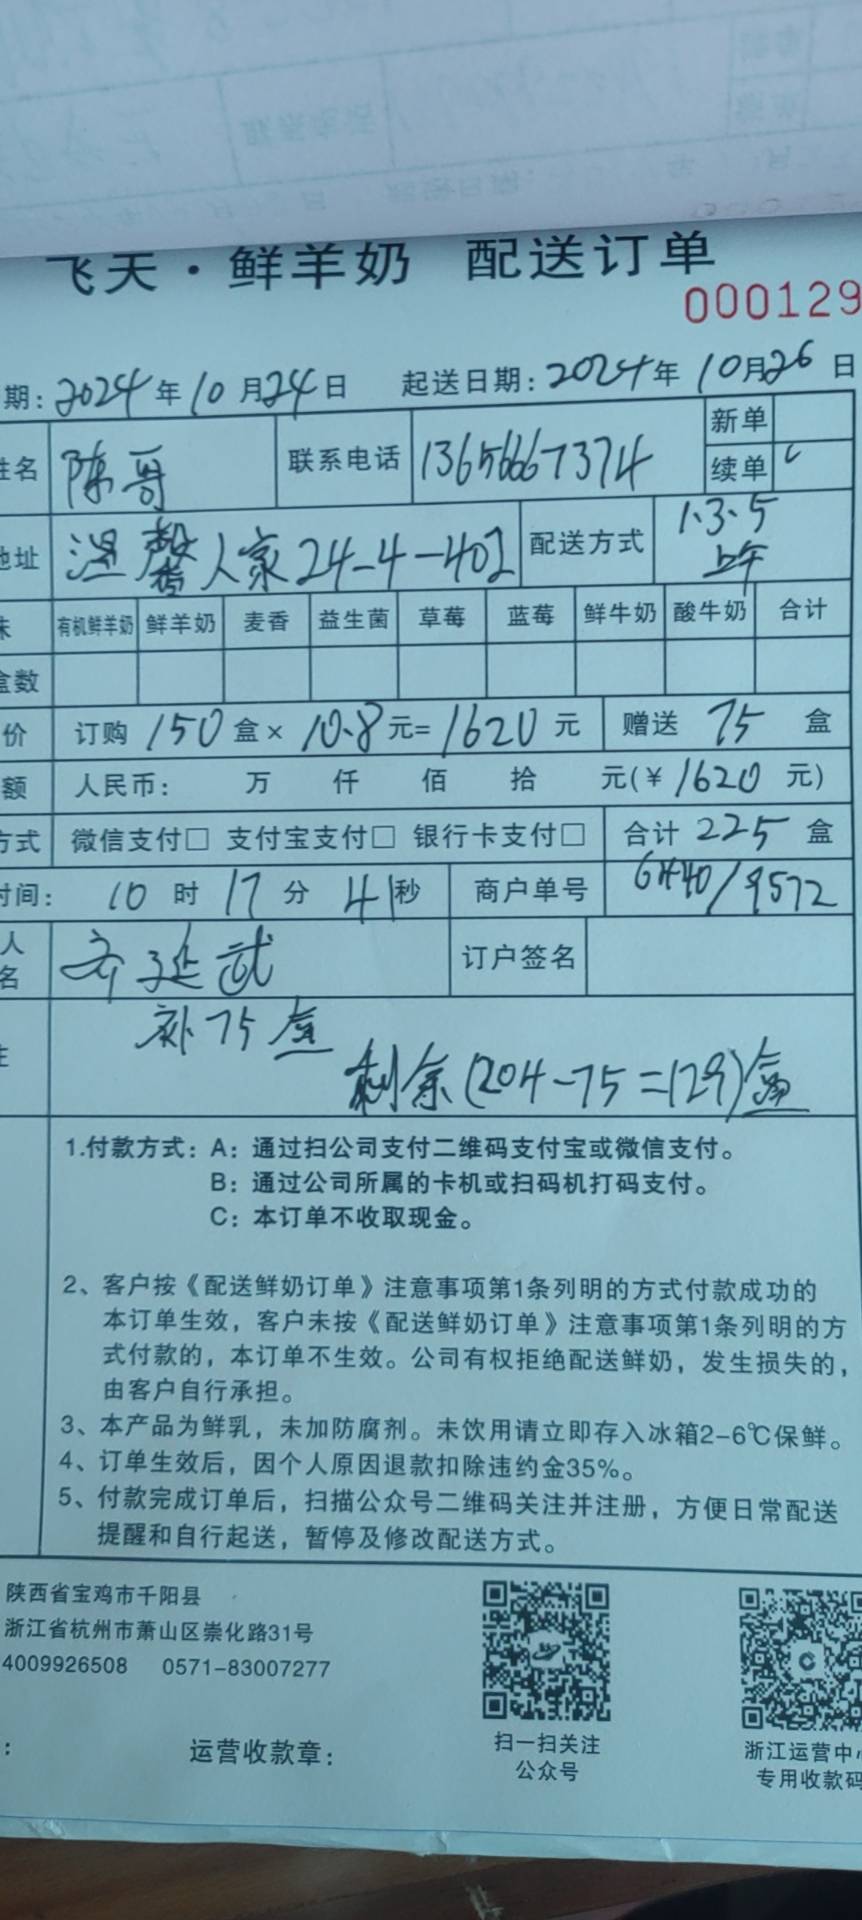 飞天·鲜羊奶 配送订单
000129
期：2024年10月24日 起送日期：2024年10月26日
姓名 陈哥 联系电话 13656667374 新单
续单
地址 温馨人家24-4-402 配送方式 1.3.5
上午
味 有机鲜羊奶 鲜羊奶 麦香 益生菌 草莓 蓝莓 鲜牛奶 酸牛奶 合计
盒数
价 订购150盒×10.8元=1620元 赠送 75 盒
额 人民币： 万 仟 佰 拾 元(￥1620元)
方式 微信支付□ 支付宝支付□ 银行卡支付□ 合计225盒
时间： 10时17分41秒 商户单号 /9572
人
名 齐延武 订户签名
补75盒
剩余(204-75=129)盒
1.付款方式：A：通过扫公司支付二维码支付宝或微信支付。
B：通过公司所属的卡机或扫码机打码支付。
C：本订单不收取现金。
2、客户按《配送鲜奶订单》注意事项第1条列明的方式付款成功的
本订单生效，客户未按《配送鲜奶订单》注意事项第1条列明的方
式付款的，本订单不生效。公司有权拒绝配送鲜奶，发生损失的，
由客户自行承担。
3、本产品为鲜乳，未加防腐剂。未饮用请立即存入冰箱2-6℃保鲜。
4、订单生效后，因个人原因退款扣除违约金35%。
5、付款完成订单后，扫描公众号二维码关注并注册，方便日常配送
提醒和自行起送，暂停及修改配送方式。
陕西省宝鸡市千阳县
浙江省杭州市萧山区崇化路31号
4009926508 0571-83007277
： 运营收款章：
扫一扫关注
公众号
浙江运营中心
专用收款码